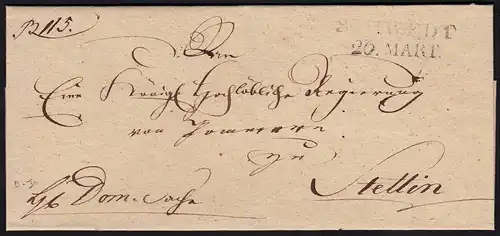 R 115.
SCHWEDT
20. MART.
An
Eine Königl Hochlöbliche Regierung
von Pommern
zu
Stettin
Dom. Sache